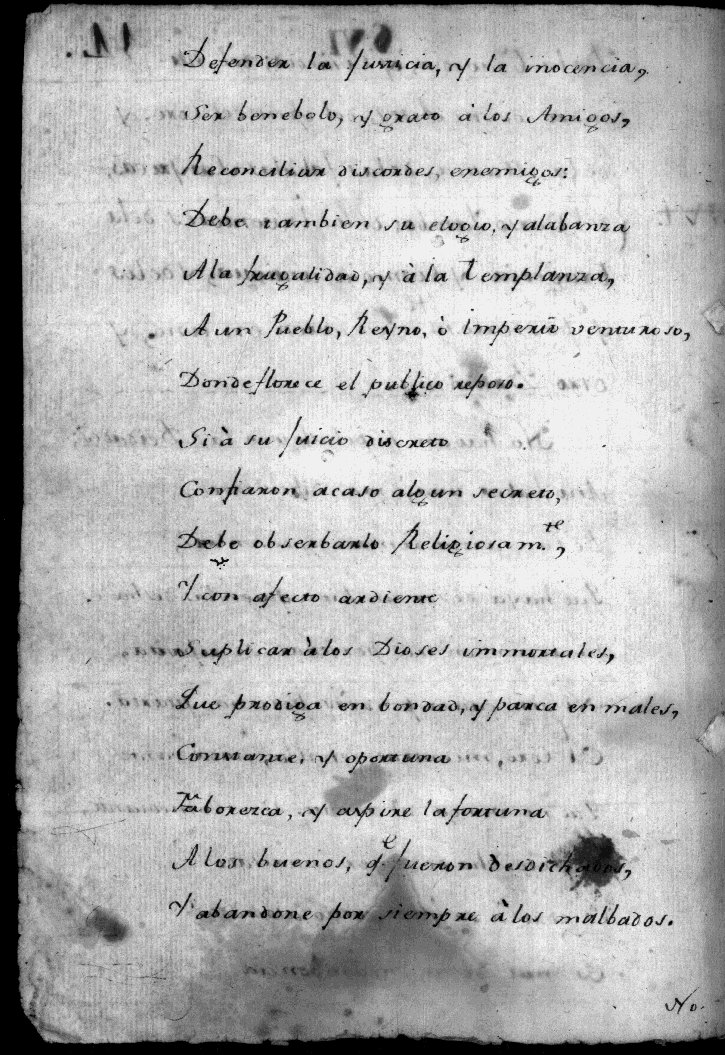 Defender la Justicia, y la inocencia,
Ser benebolo, y grato à los Amigos,
Reconciliar discordes, enemigos:
Debe tambien su elogio, y alabanza
A la frugalidad, y à la templanza,
A un Pueblo, Reyno, ò Imperio venturoso,
Donde florece el publico reposo.
Si à su Juicio discreto
Confiaron acaso algun secreto,
Debe obserbarlo Religiosam.te,
Y con afecto ardiente
Suplicar à los Dioses immortales,
Que prodiga en bondad, y parca en males,
Constante, y oportuna
Faborezca, y aspire la fortuna
A los buenos, q.e fueron desdichados,
Y abandone por siempre à los malbados.
No